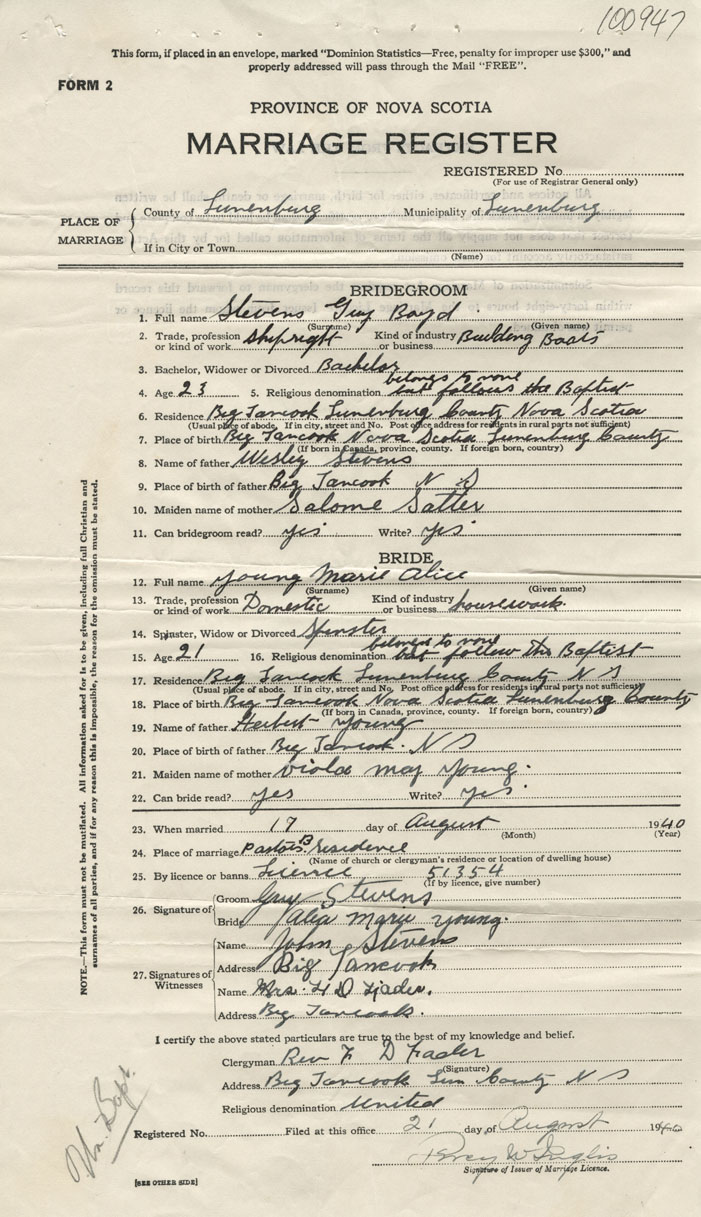 100947
This form, if placed in an envelope, marked "Dominion Statistics—Free, penalty for improper use $300," and
properly addressed will pass through the Mail "FREE".
FORM 2
PROVINCE OF NOVA SCOTIA
MARRIAGE REGISTER
REGISTERED No.
(For use of Registrar General only)
PLACE OF MARRIAGE
County of Lunenburg Municipality of Lunenburg
If in City or Town
(Name)
BRIDEGROOM
1. Full name Stevens Guy Boyd
(Surname) (Given name)
2. Trade, profession or kind of work shipright Kind of industry or business Building Boats
3. Bachelor, Widower or Divorced Bachelor
belongs to none
4. Age 23 5. Religious denomination but follows the Baptist
6. Residence Big Tancook Lunenburg County Nova Scotia
(Usual place of abode. If in city, street and No. Post office address for residents in rural parts not sufficient)
7. Place of birth Big Tancook Nova Scotia Lunenburg County
(If born in Canada, province, county. If foreign born, country)
8. Name of father Wesley Stevens
9. Place of birth of father Big Tancook N S
10. Maiden name of mother Salome Satter
11. Can bridegroom read? yes Write? yes
BRIDE
12. Full name young Marie Alice
(Surname) (Given name)
13. Trade, profession or kind of work Domestic Kind of industry or business housework
14. Spinster, Widow or Divorced Spinster
belongs to none
15. Age 21 16. Religious denomination but follow the Baptist
17. Residence Big Tancook Lunenburg County N S
(Usual place of abode. If in city, street and No. Post office address for residents in rural parts not sufficient)
18. Place of birth Big Tancook Nova Scotia Lunenburg County
(If born in Canada, province, county. If foreign born, country)
19. Name of father Herbert Young
20. Place of birth of father Big Tancook. N S
21. Maiden name of mother viola may young.
22. Can bride read? yes Write? yes.
23. When married 17 day of August 1940
(Month) (Year)
24. Place of marriage Pastors B residence
(Name of church or clergyman's residence or location of dwelling house)
25. By licence or banns Licence 51354
(If by licence, give number)
26. Signature of
Groom Guy Stevens
Bride Alia Marie young.
27. Signatures of Witnesses
Name John Stevens
Address Big Tancook
Name Mrs. F D Fader.
Address Big Tancook.
I certify the above stated particulars are true to the best of my knowledge and belief.
Clergyman Rev F D Fader
(Signature)
Address Big Tancook Lun County N S
Religious denomination United
Registered No. Filed at this office 21 day of August 1940
Percy W Inglis
Signature of Issuer of Marriage Licence.
[SEE OTHER SIDE]
NOTE.—This form must not be mutilated. All information asked for is to be given, including full Christian and
surnames of all parties, and if for any reason this is impossible, the reason for the omission must be stated.